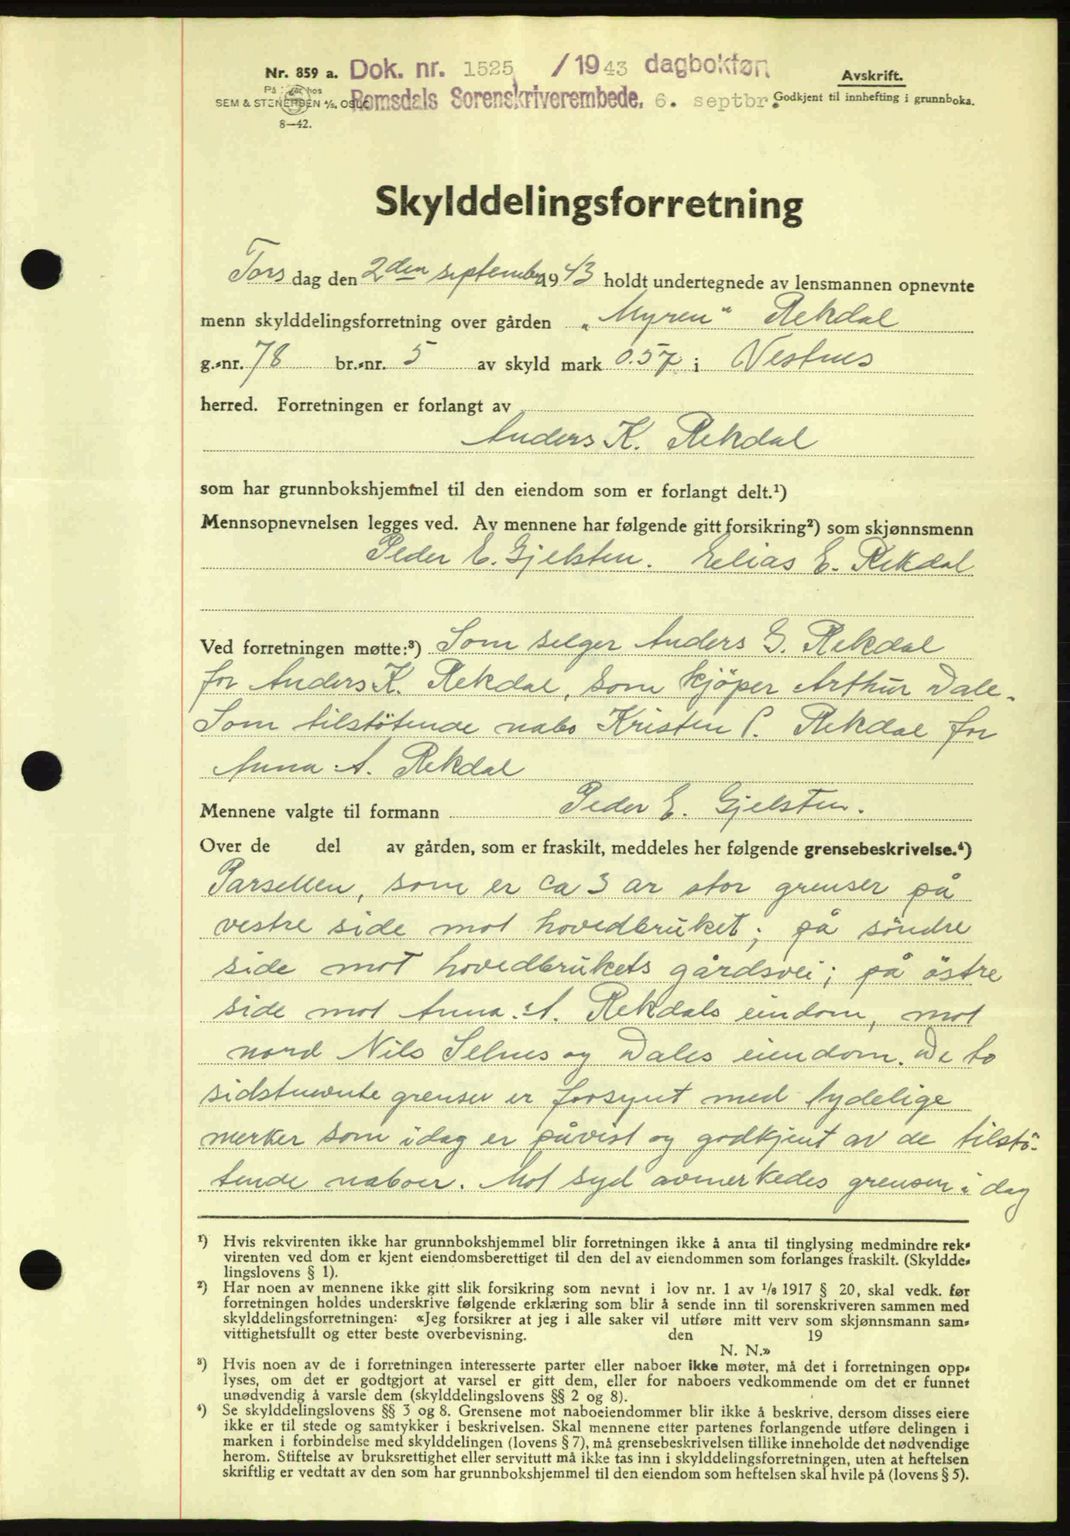 Nr. 859 a. Dok. nr. 1525 /1943 dagbokført
På hos
SEM & STENERSEN A/S, OSLO
Romsdals Sorenskriverembede, 6. septbr.
8—42.
Avskrift.
Godkjent til innhefting i grunnboka.
Skylddelingsforretning
Torsdag den 2den september 1943 holdt undertegnede av lensmannen opnevnte
menn skylddelingsforretning over gården „Myren“ Rekdal
g.-nr. 78 br.-nr. 5 av skyld mark 0.57 i Vestnes
herred. Forretningen er forlangt av
Anders K. Rekdal
som har grunnbokshjemmel til den eiendom som er forlangt delt.¹)
Mennsopnevnelsen legges ved. Av mennene har følgende gitt forsikring²) som skjønnsmenn
Peder E. Gjelsten. Elias E. Rekdal
Ved forretningen møtte:³) Som selger Anders G. Rekdal
for Anders K. Rekdal, som kjöper Arthur Dale.
Som tilstötende nabo Kristen P. Rekdal for
Anna A. Rekdal
Mennene valgte til formann Peder E. Gjelsten.
Over de del av gården, som er fraskilt, meddeles her følgende grensebeskrivelse.⁴)
Parsellen, som er ca 3 ar stor grenser på
vestre side mot hovedbruket; på söndre
side mot hovedbrukets gårdsvei; på östre
side mot Anna A. Rekdals eiendom, mot
nord Nils Selnes og Dales eiendom. De to
sidstnevnte grenser er forsynt med tydelige
merker som idag er påvist og godkjent av de tilstö-
tende naboer. Mot syd avmerkedes grensen i dag
¹) Hvis rekvirenten ikke har grunnbokshjemmel blir forretningen ikke å anta til tinglysing medmindre rek-
virenten ved dom er kjent eiendomsberettiget til den del av eiendommen som forlanges fraskilt. (Skyldde-
lingslovens § 1).
²) Har noen av mennene ikke gitt slik forsikring som nevnt i lov nr. 1 av 1/6 1917 § 20, skal vedk. før
forretningen holdes underskrive følgende erklæring som blir å sende inn til sorenskriveren sammen med
skylddelingsforretningen: «Jeg forsikrer at jeg i alle saker vil utføre mitt verv som skjønnsmann sam-
vittighetsfullt og etter beste overbevisning. den 19
N. N.»
³) Hvis noen av de i forretningen interesserte parter eller naboer ikke møter, må det i forretningen opp-
lyses, om det er godtgjort at varsel er gitt dem, eller for naboers vedkommende om det er funnet
unødvendig å varsle dem (skylddelingslovens §§ 2 og 8).
⁴) Se skylddelingslovens §§ 3 og 8. Grensene mot naboeiendommer blir ikke å beskrive, dersom disses eiere
ikke er til stede og samtykker i beskrivelsen. Skal mennene etter partenes forlangende utføre delingen i
marken i forbindelse med skylddelingen (lovens § 7), må grensebeskrivelsen tillike inneholde det nødvendige
herom. Stiftelse av bruksrettighet eller servitutt må ikke tas inn i skylddelingsforretningen, uten at heftelsen
skriftlig er vedtatt av den som har grunnbokshjemmel til den eiendom som heftelsen skal hvile på (lovens § 5).